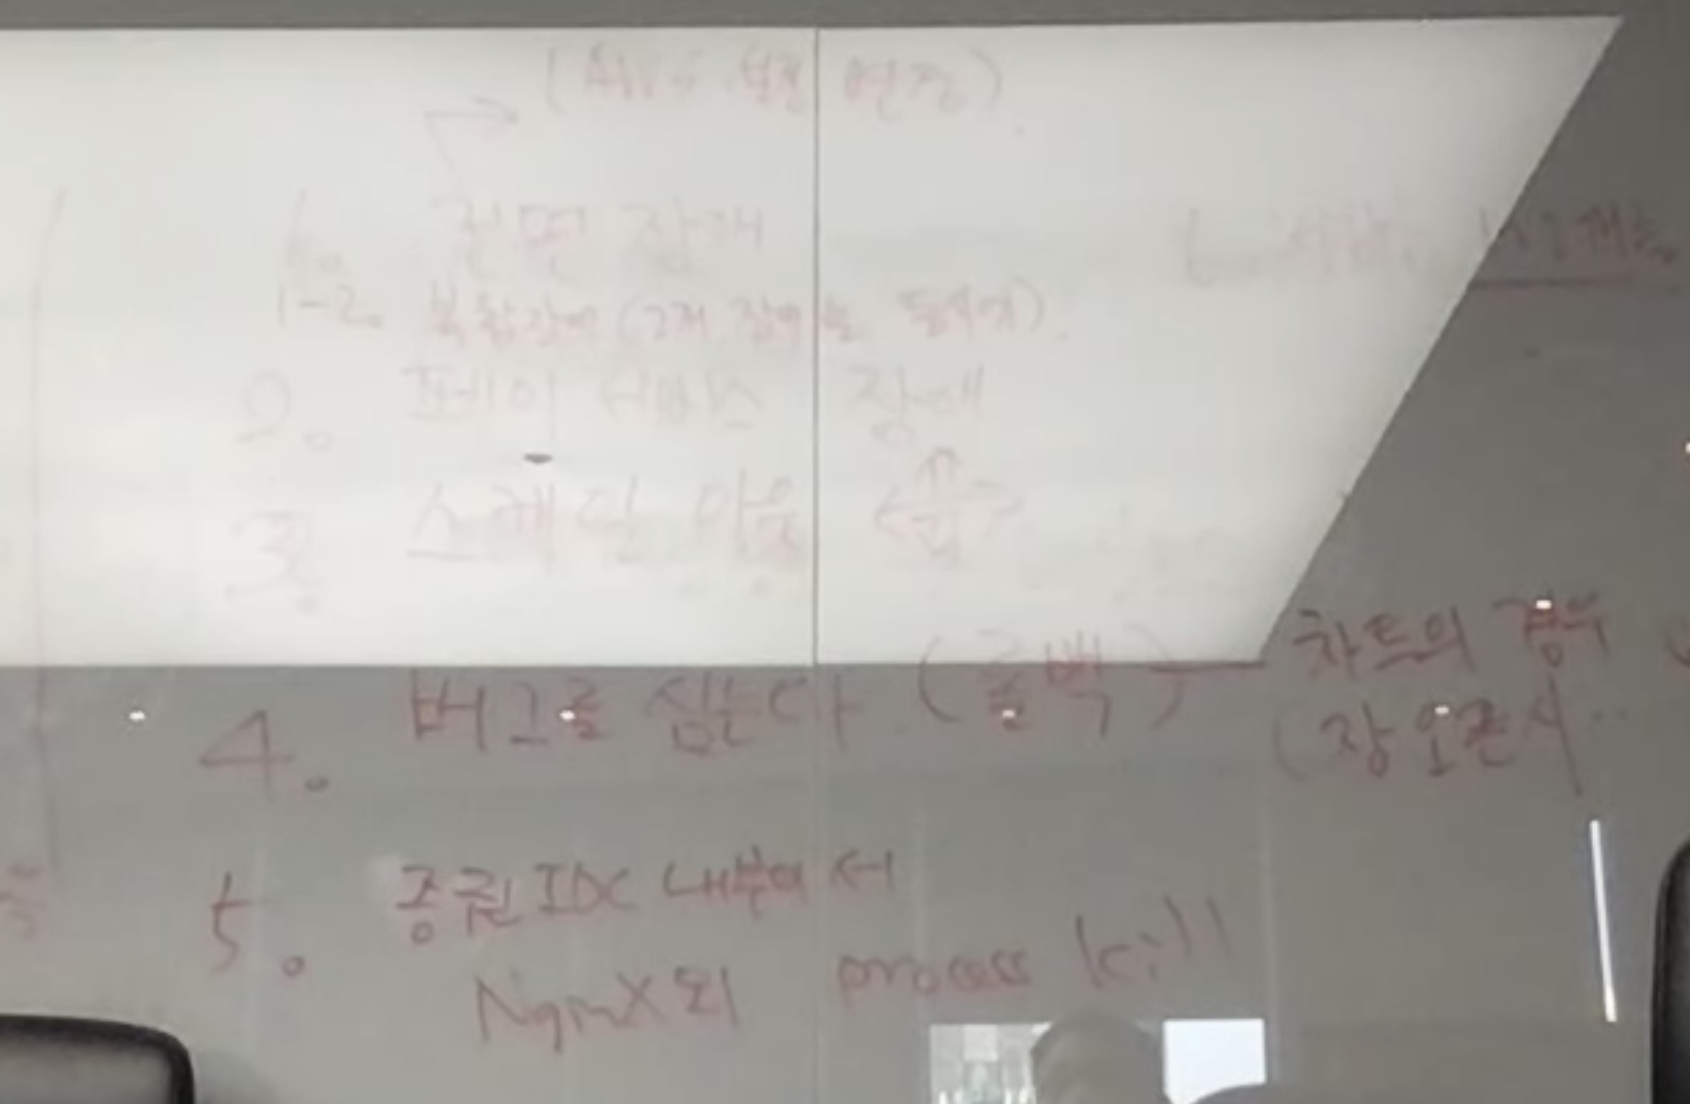 (AWS 연장)
1. 전면 장애
1-2. 복합장애 (2개 장애를 동시에)
2. 페이 서비스 장애
3. 스케일 아웃 <업>
6.
4. 버그를 심는다. (롤백) 차트의 경우
(장 오픈시..
5. 증권 IDC 내부에서
NginX의 process kill